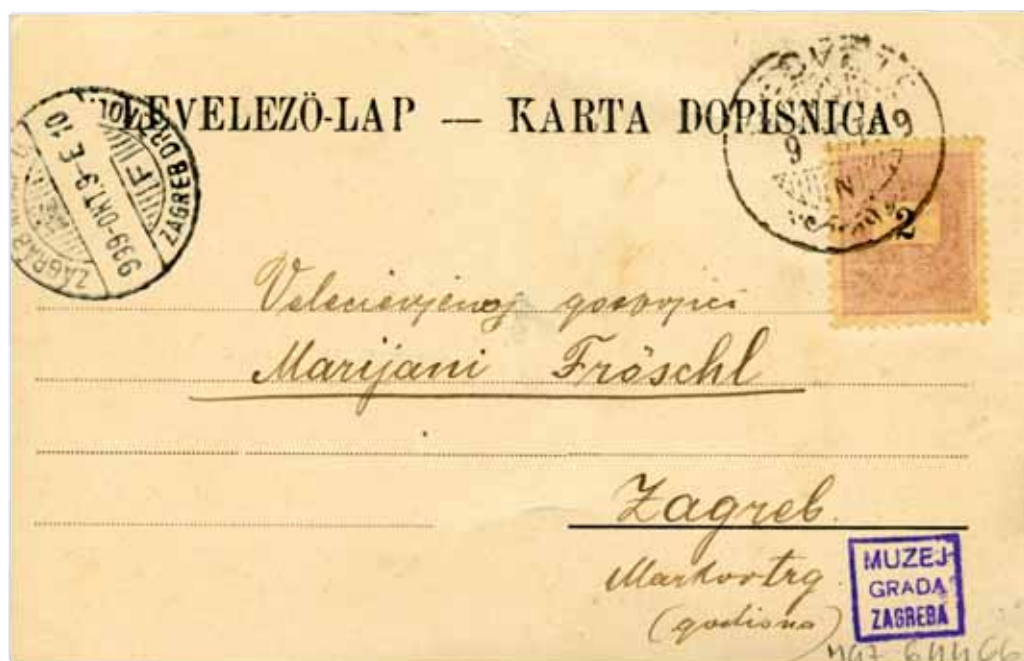 LEVELEZÖ-LAP — KARTA DOPISNICA
ZAGREB
999-OKT.9-E.10
F
9 9
N
2
Velecienjenoj gospojici
Marijani Fröschl
Zagreb.
Markov trg
MUZEJ
GRADA
ZAGREBA